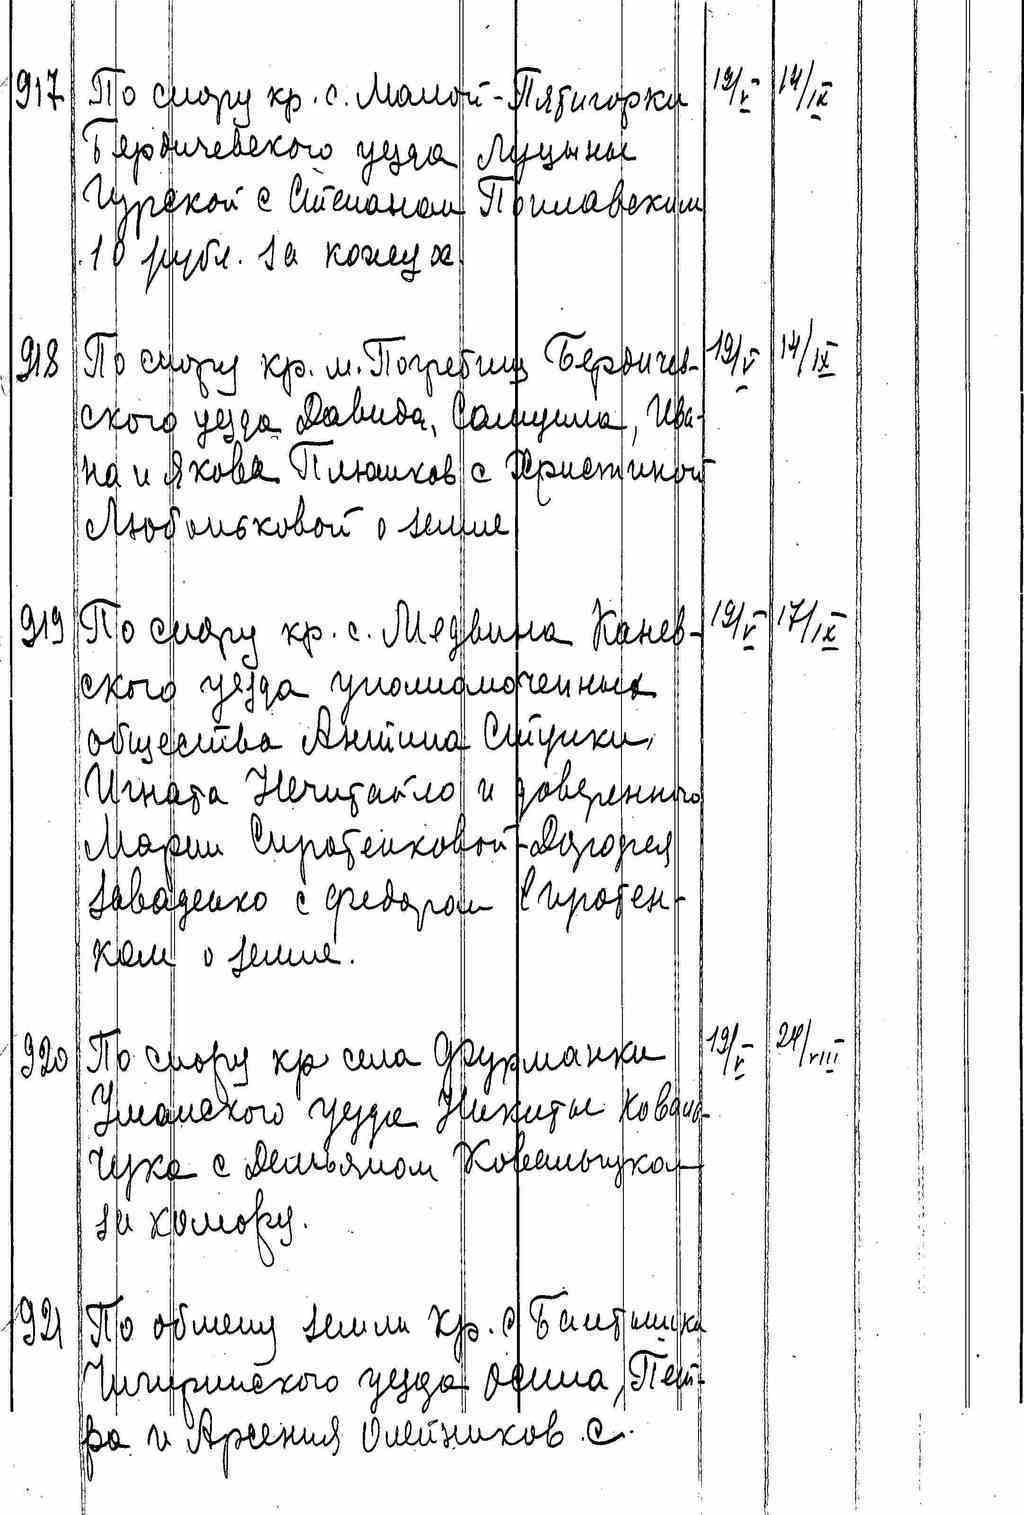 917 По спору кр. с. Малой-Пятигорки 19/V 14/IX
Бердичевского уезда Луцыны
Гурской с Степаном Поплавским
10 рубл. за кожух
918 По спору кр. м. Погребищ Бердичев- 19/V 14/IX
ского уезда Давида, Самуила, Ива-
на и Якова Плюшков с Христиной
Любоньковой о земле
919 По спору кр. с. Медвина Канев- 19/V 17/IX
ского уезда уполномоченных
общества Антипа Ступки,
Игната Нечитайло и доверенного
Марии Сиротенковой-Дорофея
Заваденко с Федором Сиротен-
ком о земле.
920 По спору кр села Фурманки 19/V 24/VIII
Уманского уезда Никиты Коваль-
чука с Демьяном Ковальчуком
за комору.
921 По обмену земли кр. с
Чигиринского уезда Осипа, Пет-
ра и Арсения Олейников с.